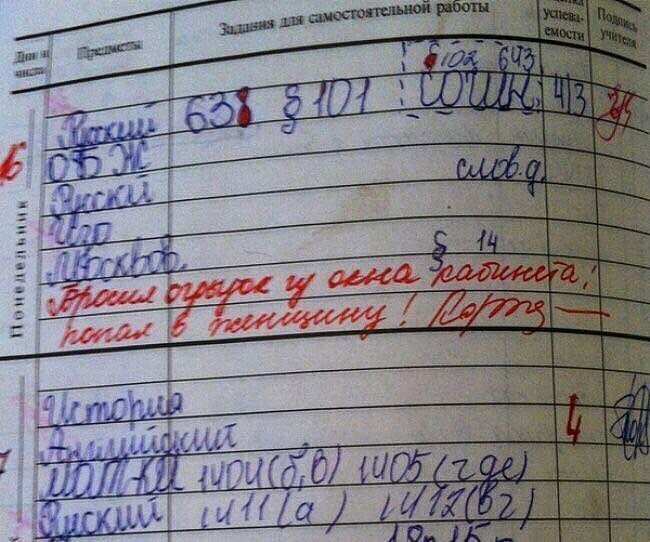 Дни и числа Предметы Задания для самостоятельной работы успева-емости Подпись учителя
§102 643
Русский 638 § 101 СОЧИН. 4/3
16 ОБЖ
Русский слов.д.
Изо
Москвов. § 14
Понедельник
Бросил огрызок из окна кабинета,
попал в женщину!
История
Английский 4
Мат-ка 1404(б,в) 1405(г де)
Русский 1411(а) 1412(вг)